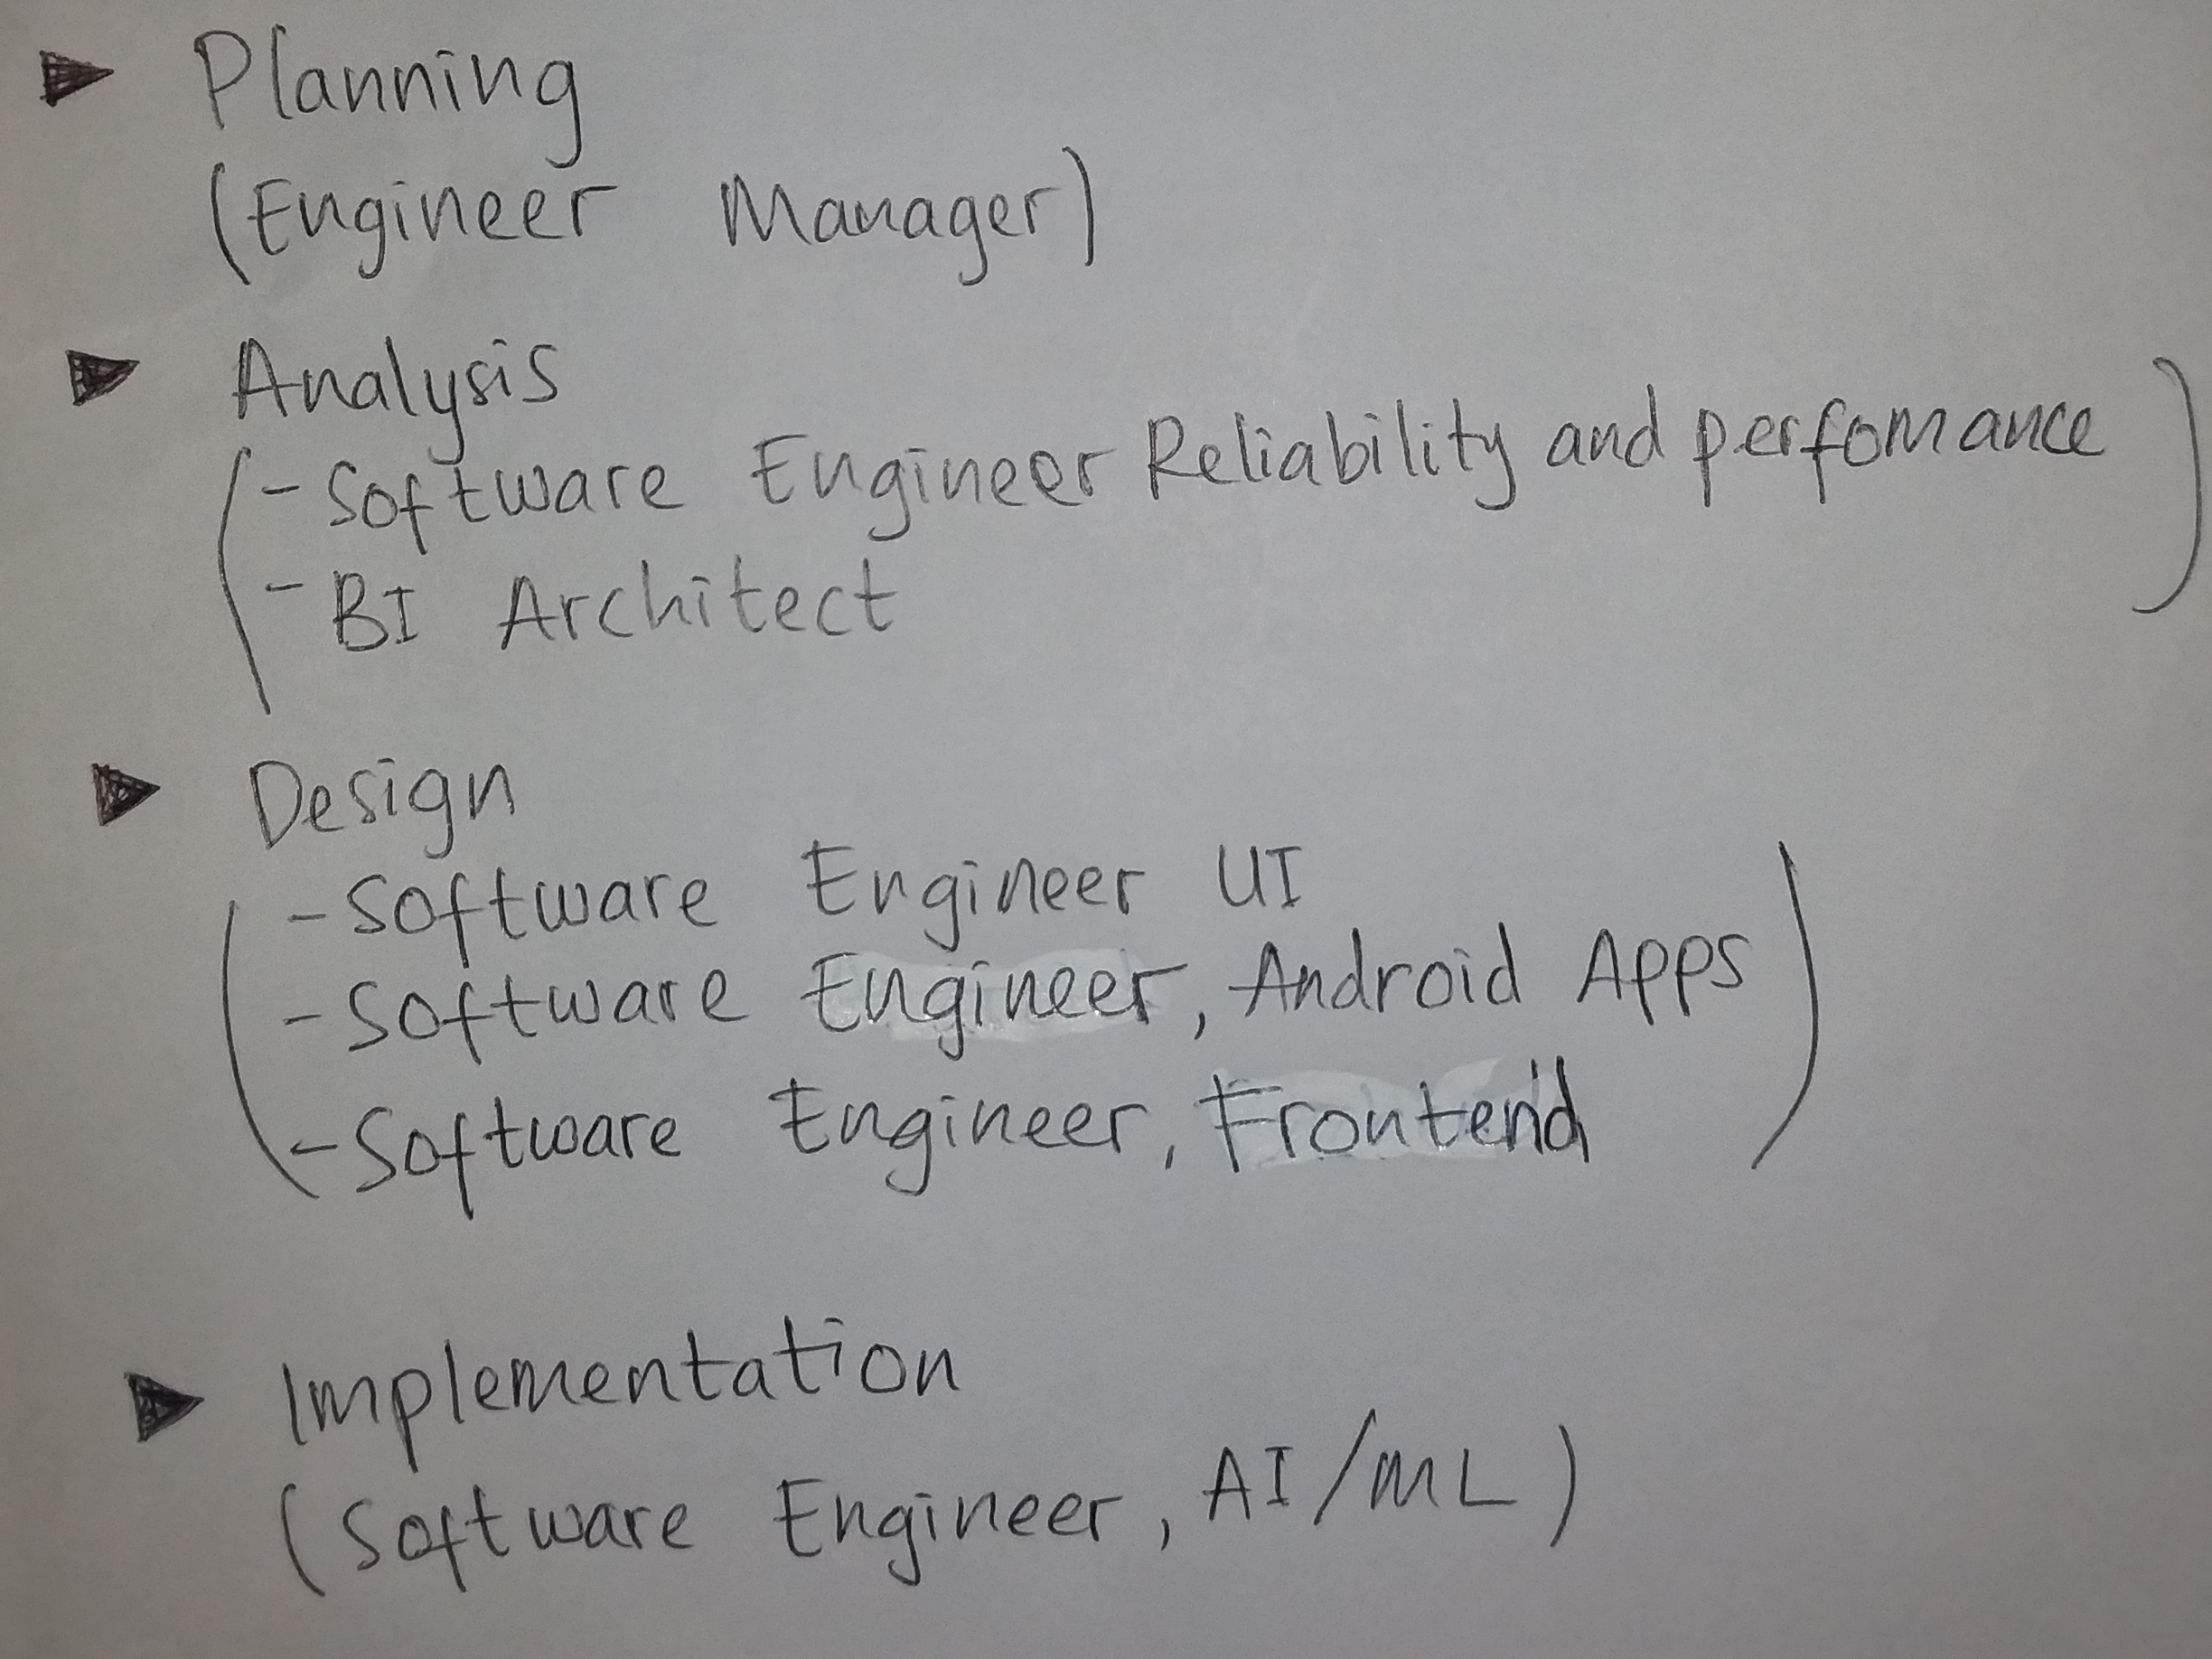 Planning
(Engineer Manager)
Analysis
- Software Engineer Reliability and perfomance
- BI Architect
Design
- Software Engineer UI
- Software Engineer, Android Apps
- Software Engineer, Frontend
Implementation
(Software Engineer, AI/ML)